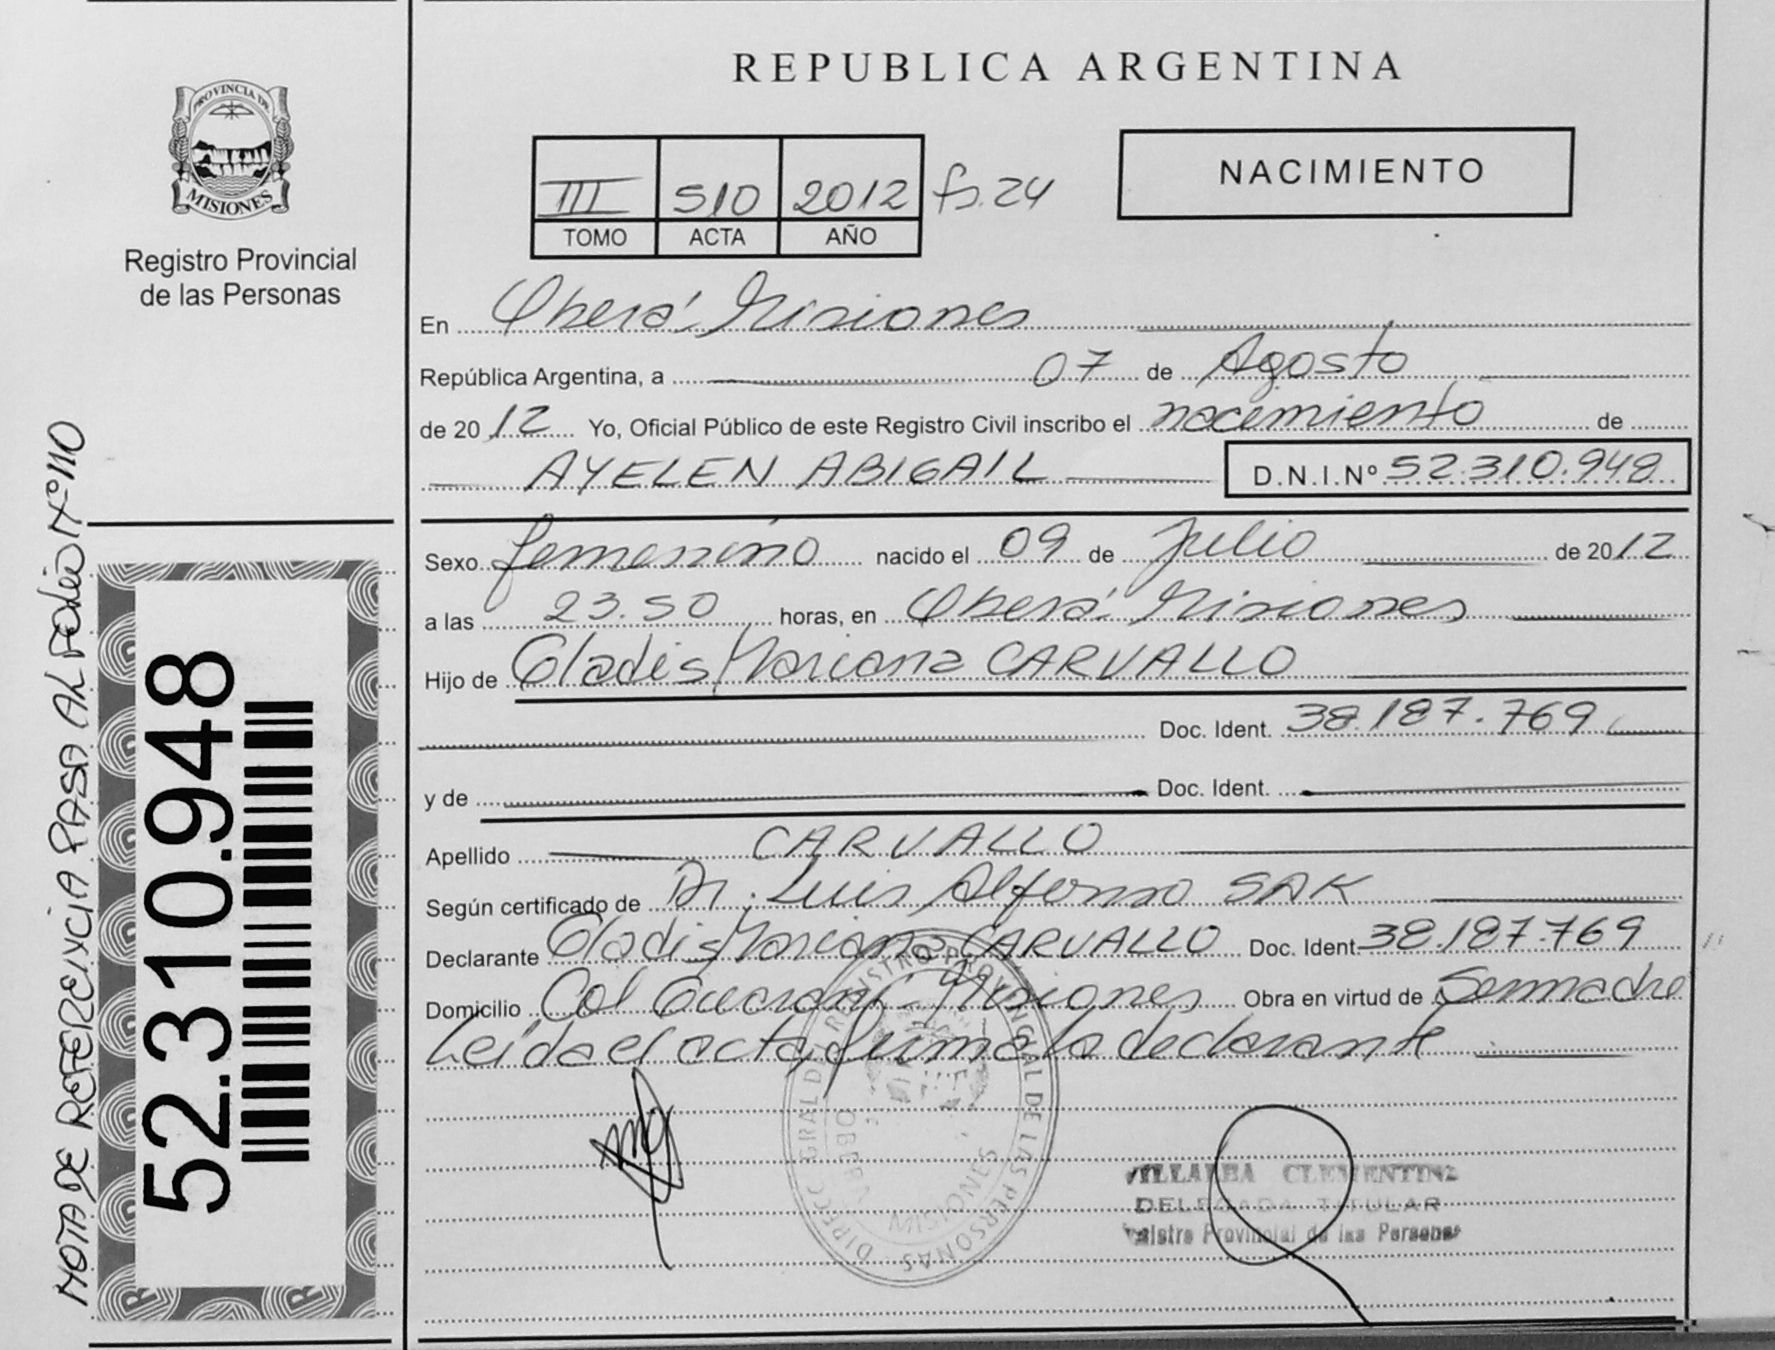 REPUBLICA ARGENTINA
PROVINCIA DE
MISIONES
Registro Provincial
de las Personas
III 510 2012 fs. 24
TOMO ACTA AÑO
NACIMIENTO
En Oberá Misiones
República Argentina, a 07 de Agosto
de 2012 Yo, Oficial Público de este Registro Civil inscribo el nacimiento de
AYELEN ABIGAIL D.N.I.Nº 52.310.948
Sexo femenino nacido el 09 de Julio de 2012
a las 23.50 horas, en Oberá Misiones
Hijo de Gladis Mariana CARVALLO
Doc. Ident. 38.187.769
y de Doc. Ident.
Apellido CARVALLO
Según certificado de Dr. Luis Alfonso SAK
Declarante Gladis Mariana CARVALLO Doc. Ident. 38.187.769
Domicilio Col Guaraní - Misiones Obra en virtud de Ser madre
Leida el acta, firma la declarante
DIRECC GRAL DEL REGISTRO PROVINCIAL DE LAS PERSONAS
OBERA
MISIONES
VILLALBA CLEMENTINA
DELEGADA TITULAR
Registro Provincial de las Personas
NOTA DE REFERENCIA PASA AL FOLIO Nº 110
52.310.948